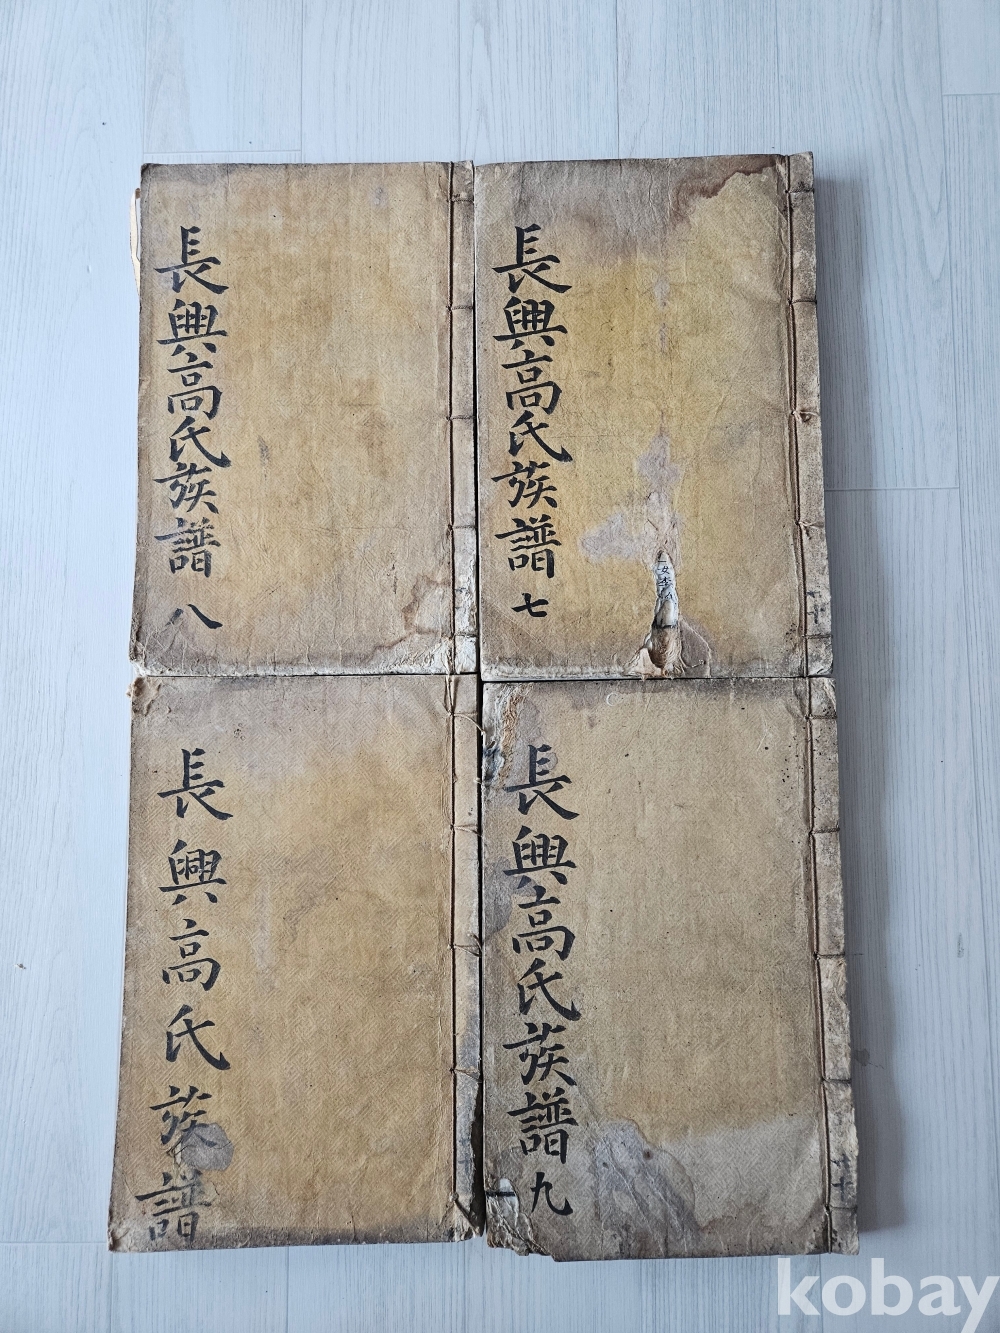 長興高氏族譜 八
長興高氏族譜 七
長興高氏族譜
長興高氏族譜 九
kobay